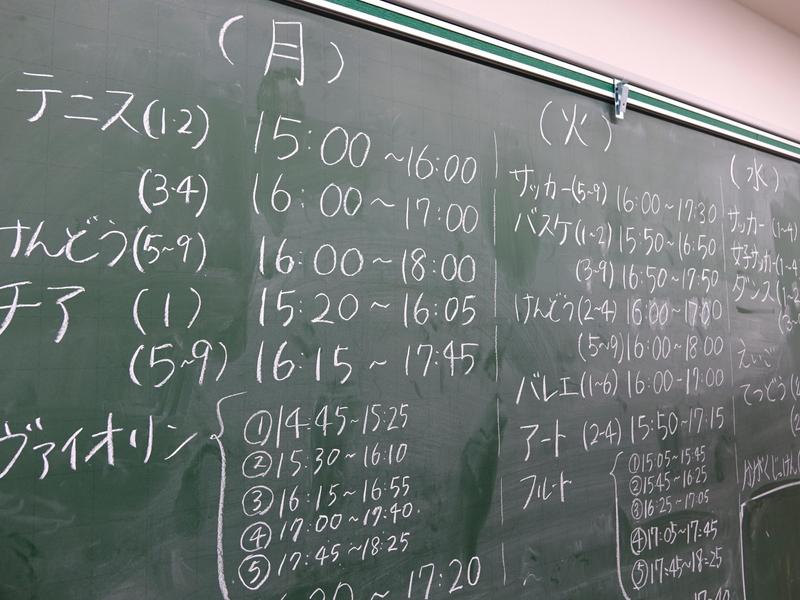 (月)
テニス(1・2) 15:00~16:00
(3・4) 16:00~17:00
けんどう(5~9) 16:00~18:00
チア (1) 15:20~16:05
(5~9) 16:15~17:45
ヴァイオリン
①14:45~15:25
②15:30~16:10
③16:15~16:55
④17:00~17:40
⑤17:45~18:25
~17:20
(火)
サッカー(5~9) 16:00~17:30
バスケ(1~2) 15:50~16:50
(3~9) 16:50~17:50
けんどう(2~4) 16:00~17:00
(5~9) 16:00~18:00
バレエ(1~6) 16:00-17:00
アート (2-4) 15:50~17:15
フルート
①15:05~15:45
②15:45~16:25
③16:25~17:05
④17:05~17:45
⑤17:45~18:25
(水)
サッカー (1~4)
女子サッカー(1~4
ダンス(1~2
えいご
てつどう